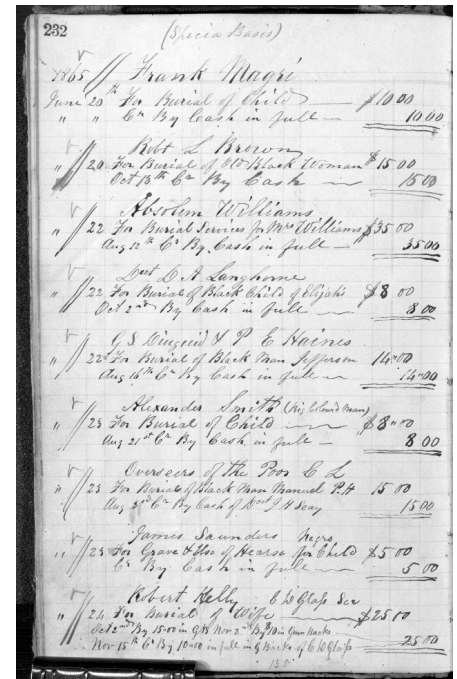 232
(Specia Basis)
1865 Frank Magri
June 20th For Burial of Child $10 00
" " Cr By Cash in full 10 00
Robt L Brown
" 20 For Burial of Old Black Woman $15 00
Oct 13th Cr By Cash 15 00
Absolem Williams
" 22 For Burial Services for Mrs Williams $35 00
Aug 12th Cr By Cash in full 35 00
D A Langhorne
" 22 For Burial of Black Child of Elijahs $8 00
Oct 2nd By Cash in full 8 00
G S & P E Haines
" 22 For Burial of Black Man Jefferson 14 00
Aug 14th Cr By Cash in full 14 00
Alexander Smith (Colored Man)
" 23 For Burial of Child $8 00
Aug 21st Cr By Cash in full 8 00
Overseers of the Poor C L
" 23 For Burial of Black Man Manuel P.H 15 00
Aug Cr By Cash of J H Seay 15 00
James Saunders Negro
" 23 For Grave & Use of Hearse for Child $5 00
Cr By Cash in full 5 00
Robert Kelly
" 24 For Burial of Wife $25 00
Oct 2nd By 15.00 in Nov 2nd By 10 in
Nov 15th Cr By 10.00 in full in of 25 00